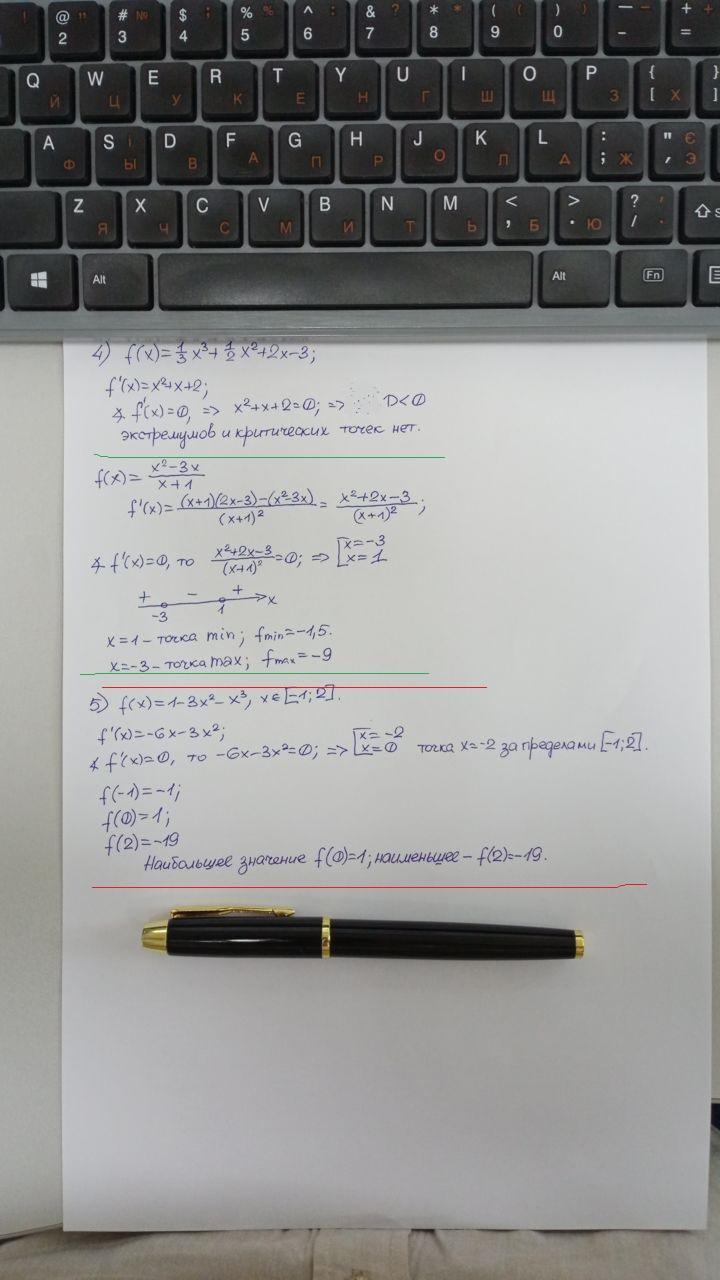 ! @ " # № $ ; % % ^ : & ? * * ( ( ) ) _ — + +
2 3 4 5 6 7 8 9 0 - =
Q W E R T Y U I O P { }
Й Ц У К Е Н Г Ш Щ З [ Х ]
A S і D F G H J K L : " Є
Ф Ы В А П Р О Л Д ; Ж ' Э
Z X C V B N M < > ?
Я Ч С М И Т Ь , Б . Ю /
Alt Alt Fn
4) f(x)=1/3 x³+1/2 x²+2x-3;
f'(x)=x²+x+2;
∡ f'(x)=0, => x²+x+2=0; => D<0
экстремумов и критических точек нет.
f(x)= (x²-3x)/(x+1)
f'(x)= ((x+1)(2x-3)-(x²-3x))/(x+1)² = (x²+2x-3)/(x+1)²;
∡ f'(x)=0, то (x²+2x-3)/(x+1)²=0; => [x=-3
x=1
+ - +
-3 1 x
x=1 - точка min; fmin=-1,5.
x=-3 - точка max; fmax=-9
5) f(x)=1-3x²-x³, x∈[-1;2].
f'(x)=-6x-3x²;
∡ f'(x)=0, то -6x-3x²=0; => [x=-2
x=0 точка x=-2 за пределами [-1;2].
f(-1)=-1;
f(0)=1;
f(2)=-19
Наибольшее значение f(0)=1; наименьшее - f(2)=-19.